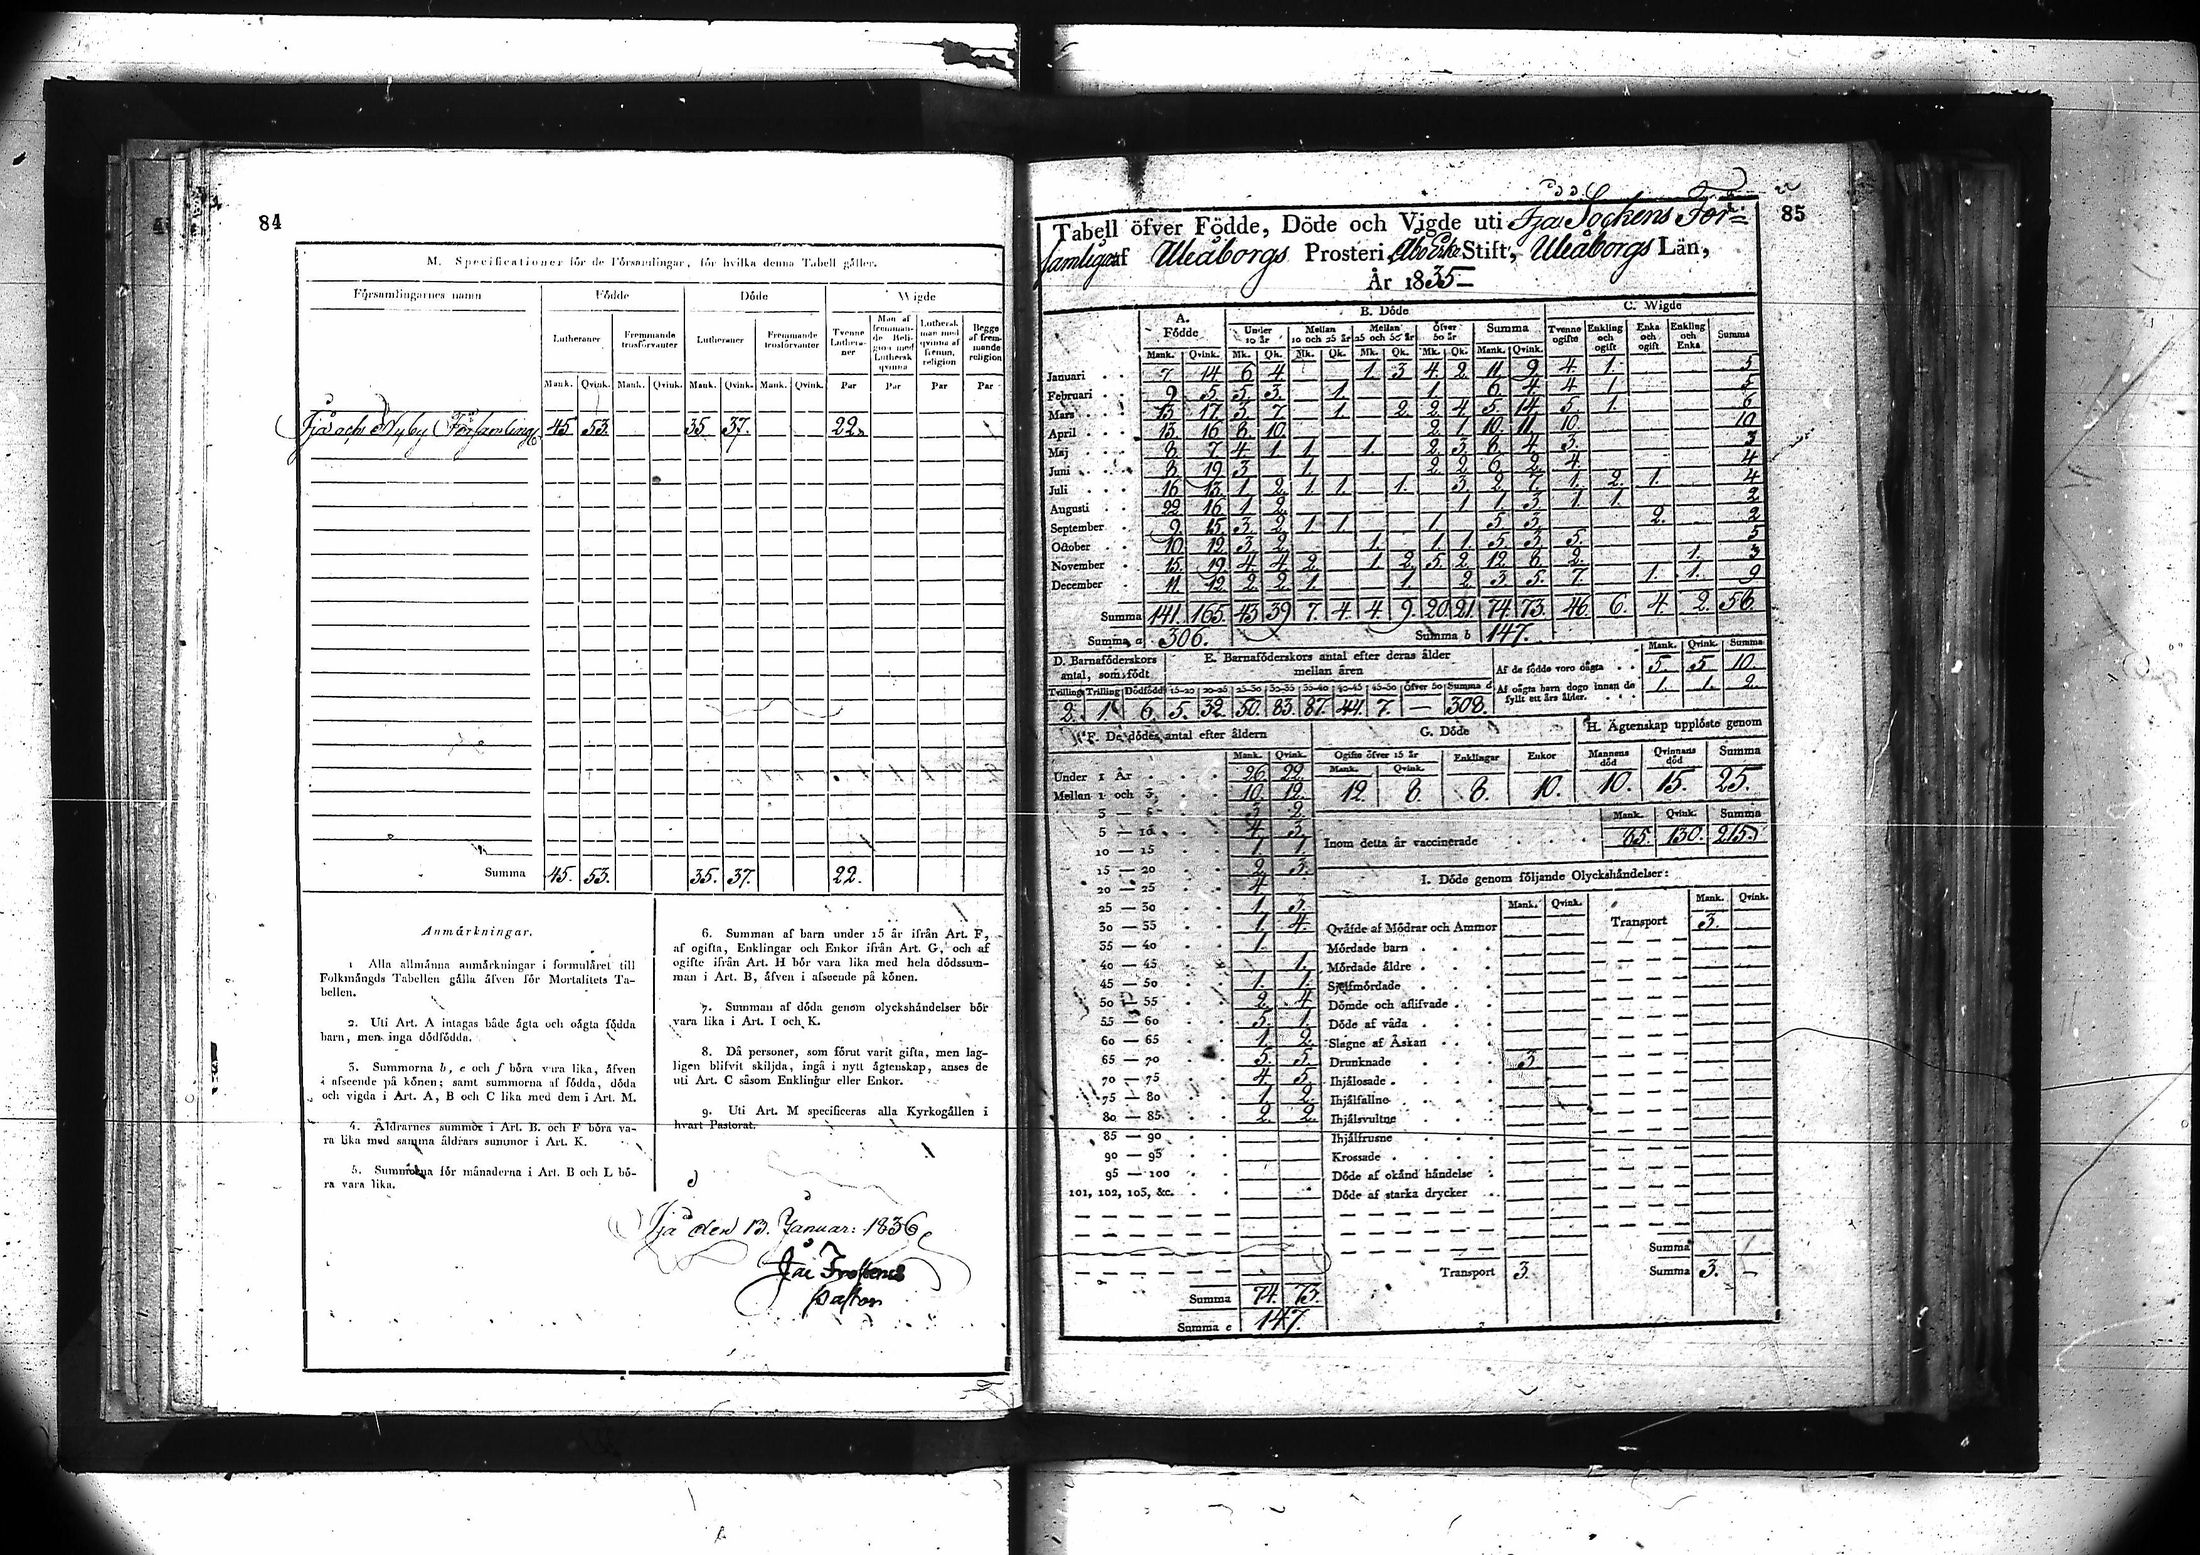 84
M. Specificationer för de Församlingar, för hvilka denna Tabell gäller.
Församlingarnes namn Födde Döde Wigde
Lutheraner Fremmande trosförvanter Lutheraner Fremmande trosförvanter Tvenne Lutheraner Man af fremmande Religion med Luthersk qvinna Luthersk man med qvinna af fremm. religion Begge af fremmande religion
Mank. Qvink. Mank. Qvink. Mank. Qvink. Mank. Qvink. Par Par Par Par
Församling 45 53. 35 37. 22.
Summa 45. 53. 35. 37. 22.
Anmärkningar.
1 Alla allmänna anmärkningar i formuläret till
Folkmängds Tabellen gälla äfven för Mortalitets Ta-
bellen.
2. Uti Art. A intagas både ägta och oägta födda
barn, men inga dödfödda.
3. Summorna b, e och f böra vara lika, äfven
i afseende på könen; samt summorna af födda, döda
och vigda i Art. A, B och C lika med dem i Art. M.
4. Åldrarnes summor i Art. B. och F böra va-
ra lika med samma åldrars summor i Art. K.
5. Summorna för månaderna i Art. B och L bö-
ra vara lika.
6. Summan af barn under 15 år ifrån Art. F,
af ogifta, Enklingar och Enkor ifrån Art. G, och af
ogifte ifrån Art. H bör vara lika med hela dödssum-
man i Art. B, äfven i afseende på könen.
7. Summan af döda genom olyckshändelser bör
vara lika i Art. I och K.
8. Då personer, som förut varit gifta, men lag-
ligen blifvit skiljda, ingå i nytt ägtenskap, anses de
uti Art. C såsom Enklingar eller Enkor.
9. Uti Art. M specificeras alla Kyrkogällen i
hvart Pastorat.
Ijå den 13. Januar: 1836
Pastor
85
Tabell öfver Födde, Döde och Vigde uti Ijo Sockens För=
samling af Uleåborgs Prosteri, Åbo Stift, Uleåborgs Län,
År 1835
A. Födde B. Döde C. Wigde
Under 10 år Mellan 10 och 25 år Mellan 25 och 50 år Öfver 50 år Summa Tvenne ogifte Enkling och ogift Enka och ogift Enkling och Enka Summa
Mank. Qvink. Mk. Qk. Mk. Qk. Mk. Qk. Mk. Qk. Mank. Qvink.
Januari 7 14 6 4 1. 3 4. 2. 11. 9. 4. 1. 5
Februari 9. 5 5. 3. 1. 1. 6. 4. 4 1 5
Mars 13 17 3. 7. 1. 2. 2. 4. 5. 14. 5. 1. 6
April 13. 16 8. 10. 2. 1. 10. 11. 10. 10
Maj 8. 7 4 1 1 1. 2. 3. 8. 4. 3. 3
Juni 8. 19 3 1. 2. 2. 6. 2. 4. 4
Juli 16 13. 1 2. 1 1. 1. 3. 2. 7. 1. 2. 1. 4
Augusti 22. 16 1 2. 1 1 3 1. 1. 2
September 9. 15 3. 2. 1 1. 1. 5 3. 2. 2
October 10. 12 3. 2. 1. 1. 1. 5 3. 5. 5
November 15. 19. 4 4 2. 1 2. 5. 2. 12. 8. 2. 1. 3
December 11. 12 2 2 1. 1. 2. 3 5. 7. 1. 1. 9
Summa 141. 165. 43 39 7. 4. 4. 9. 20. 21. 74. 73. 46. 6. 4. 2. 56.
Summa a 306. Summa b 147.
D. Barnaföderskors antal, som födt E. Barnaföderskors antal efter deras ålder mellan åren Mank. Qvink. Summa
Af de födde voro oägta 5. 5 10.
Tvilling Trilling Dödfödd 15-20 20-25 25-30 30-35 35-40 40-45 45-50 Öfver 50 Summa d
Af oägta barn dogo innan de fyllt ett års ålder. 1. 1. 2.
2. 1. 6. 5. 32. 50. 83. 87. 44. 7. — 308.
F. De dödes antal efter åldern G. Döde H. Ägtenskap upplöste genom
Mank. Qvink. Ogifte öfver 15 år Enklingar Enkor Mannens död Qvinnans död Summa
Mank. Qvink.
12. 8. 8. 10. 10. 15. 25.
Under 1 År 26. 22.
Mellan 1 och 3 10. 12.
3 — 5 3 2.
5 — 10 4 3
10 — 15 1 1.
15 — 20 2. 3.
20 — 25 4
25 — 30 1. 3.
30 — 35 1. 4.
35 — 40 1.
40 — 45 1.
45 — 50 1. 1.
50 — 55 2. 4
55 — 60 5. 1.
60 — 65 1. 2.
65 — 70 5. 5.
70 — 75 4. 5.
75 — 80 1. 2.
80 — 85 2. 2.
85 — 90
90 — 95
95 — 100
101, 102, 103, &c.
Summa 74. 73.
Summa e 147.
Mank. Qvink. Summa
Inom detta år vaccinerade 85. 130. 215.
I. Döde genom följande Olyckshändelser:
Mank. Qvink. Mank. Qvink.
Qväfde af Mödrar och Ammor Transport 3.
Mördade barn
Mördade äldre
Sjelfmördade
Dömde och aflifvade
Döde af våda
Slagne af Åskan
Drunknade 3
Ihjälosade
Ihjälfallne
Ihjälsvultne
Ihjälfrusne
Krossade
Döde af okänd händelse
Döde af starka drycker
Summa
Transport 3. Summa 3. —